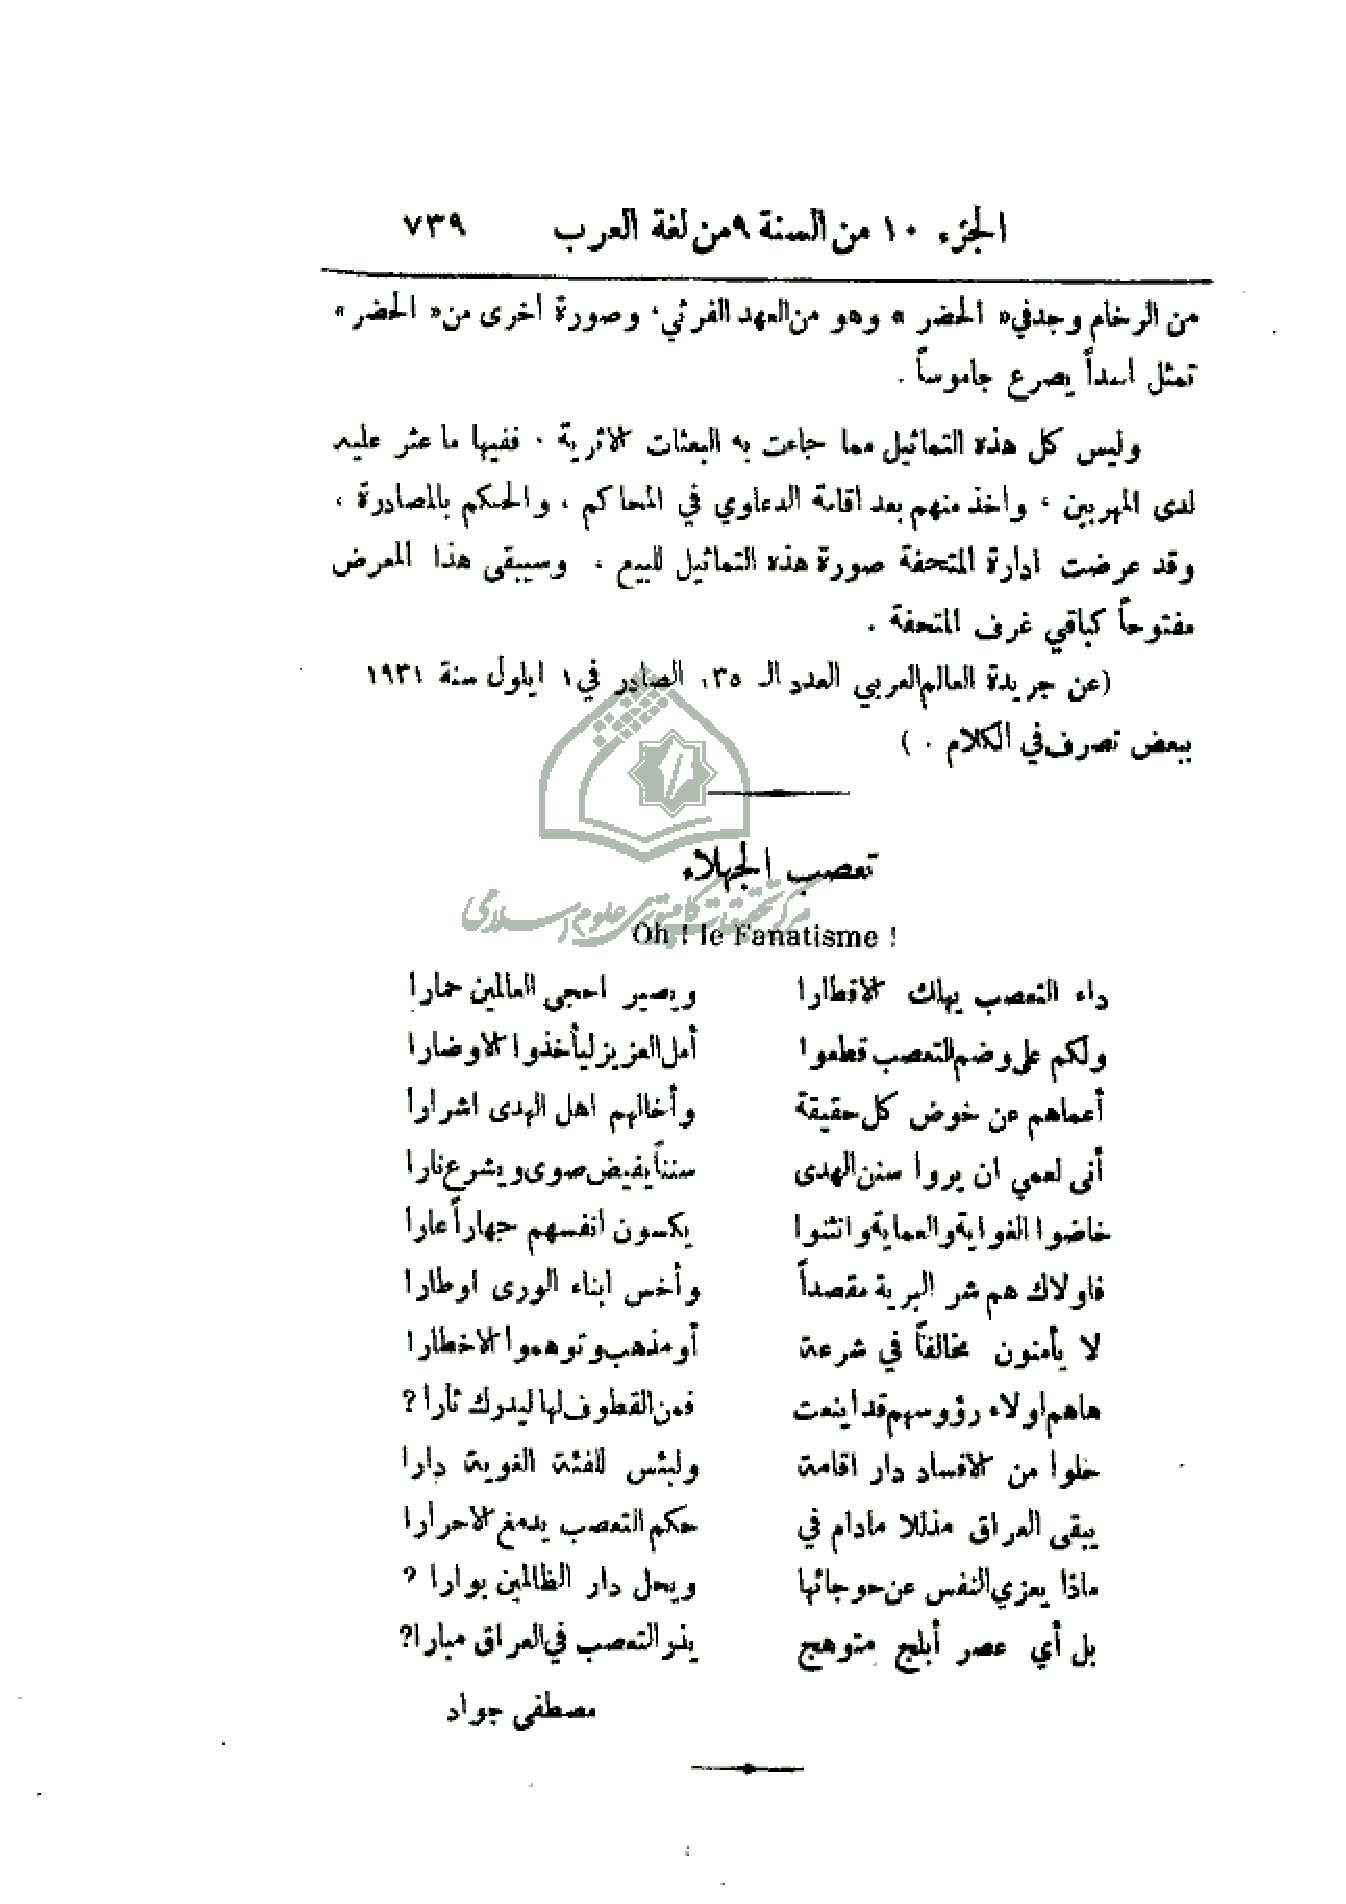 الجزء ١٠ من السنة ٩ من لغة العرب ٧٣٩
من الرخام وجد في « الحضر » وهو من العهد الفرثي، وصورة اخرى من « الحضر »
تمثل اسداً يصرع جاموساً .
وليس كل هذه التماثيل مما جاءت به البعثات الاثرية . ففيها ما عثر عليه
لدى المهربين ، واخذ منهم بعد اقامة الدعاوي في المحاكم ، والحكم بالمصادرة ،
وقد عرضت ادارة المتحفة صورة هذه التماثيل للبيع ، وسيبقى هذا المعرض
مفتوحاً كباقي غرف المتحفة .
(عن جريدة العالم العربي العدد الـ الصادر في ١ ايلول سنة ١٩٣١
ببعض تصرف في الكلام . )
تعصب الجهلاء
Oh ! le Fanatisme !
داء التعصب يهلك الاقطارا ويصير احجى العالمين حمارا
ولكم على وضم التعصب قطعوا أمل العزيز ليأخذوا الاوضارا
أعماهم عن خوض كل حقيقة وأخالهم اهل الهدى اشرارا
أنى لعمي ان يروا سنن الهدى سنناً يفيض صوى ويشرع نارا
خاضوا الغواية والعماية وانثنوا يكسون انفسهم جهاراً عارا
فاولاك هم شر البرية مقصداً وأخس ابناء الورى اوطارا
لا يأمنون مخالفاً في شرعة أو مذهب وتوهموا الاخطارا
هاهم اولاء رؤوسهم قد اينعت فمن القطوف لها ليدرك ثارا ?
خلوا من الافساد دار اقامة ولبئس للفئة الغوية دارا
يبقى العراق مذللا مادام في حكم التعصب يدمغ الاحرارا
ماذا يعزي النفس عن حوجائها ويحل دار الظالمين بوارا ?
بل أي عصر أبلج متوهج يذر التعصب في العراق مبارا?
مصطفى جواد
مركز تحقیقات کامپیوتری علوم اسلامی